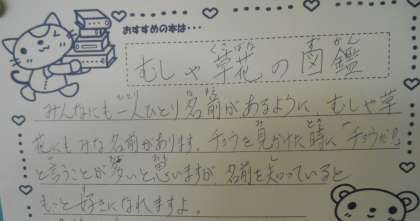 おすすめの本は…
むしゃ草花の図鑑
みんなにも一人ひとり名前があるように、むしや草
花にもみな名前があります。チョウを見かけた時に「チョウだ!」
と言うことが多いと思いますが名前を知っていると
もっと好きになれますよ。